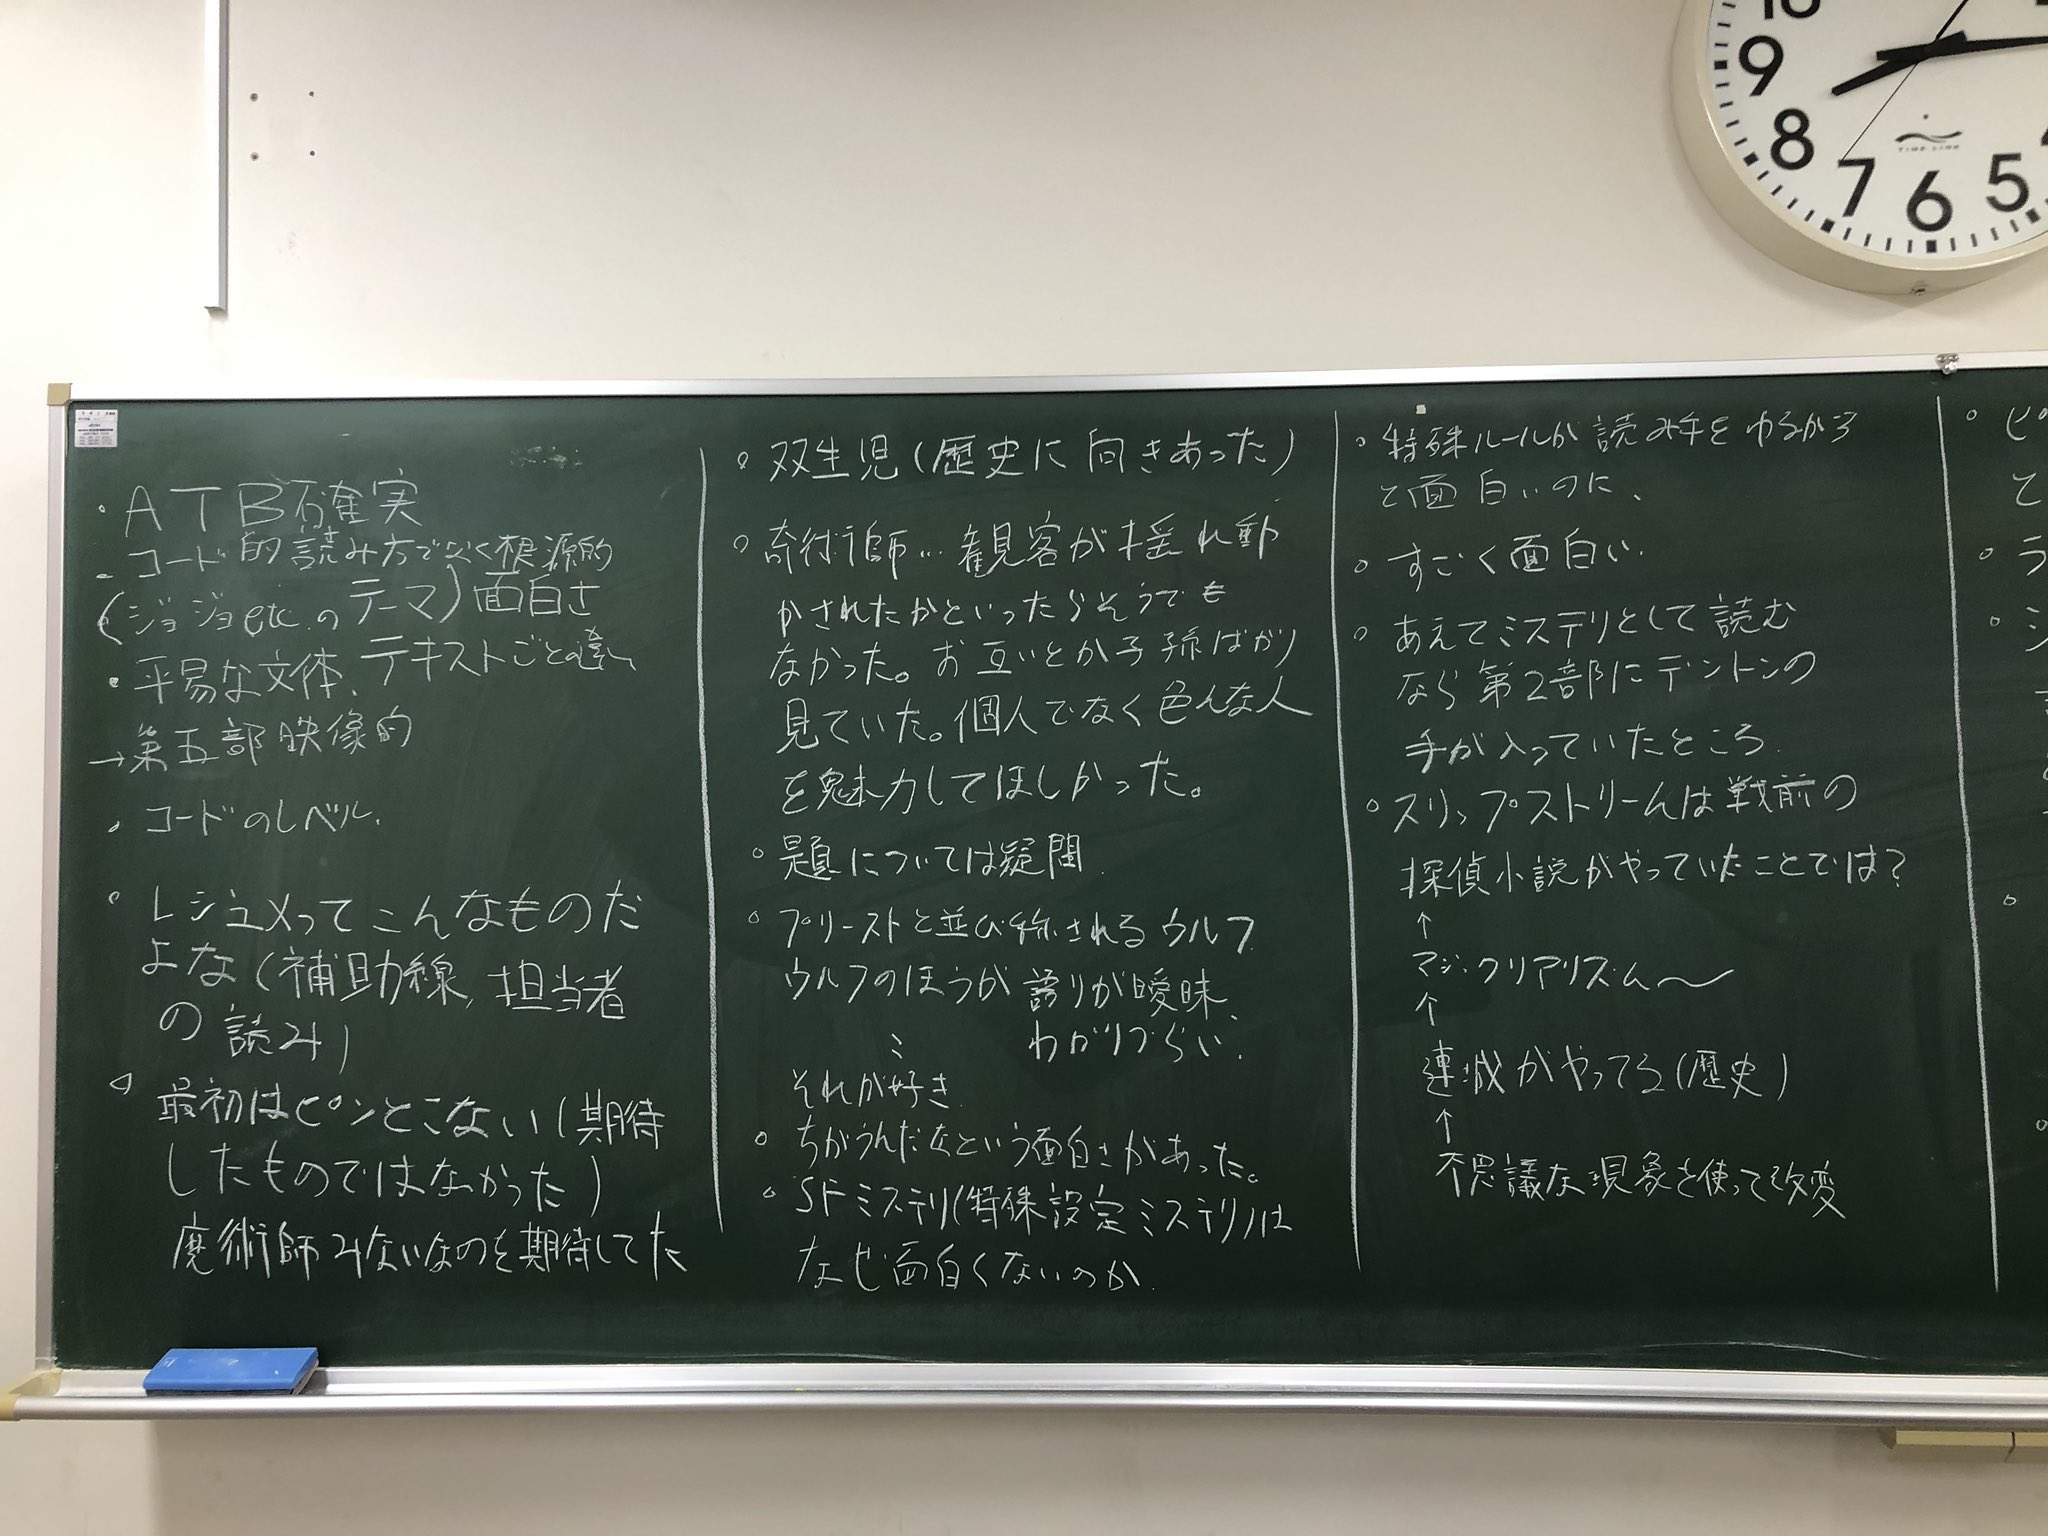 ・ATB確実
- コード的読み方でなく根源的
(ジョジョetc.のテーマ)面白さ
・平易な文体、テキストごとの違い
→第五部映像的
・コードのレベル.
○ レジュメってこんなものだ
よな(補助線,担当者
の読み)
最初はピンとこない(期待
したものではなかった)
魔術師みないなのを期待してた
○ 双生児(歴史に向きあった)
○ 奇術師…観客が揺れ動
かされたかといったらそうでも
なかった。お互いとか子孫ばかり
見ていた。個人でなく色んな人
を魅力してほしかった。
○ 題については疑問
○ プリーストと並び称されるウルフ.
ウルフのほうが語りが曖昧、
わかりづらい.
それが好き.
○ ちがうんだなという面白さがあった。
○ SFミステリ(特殊設定ミステリ)は
なぜ面白くないのか.
○ 特殊ルールが読み手をゆるがす
と面白いのに、
○ すごく面白い.
○ あえてミステリとして読む
なら第2部にデントンの
手が入っていたところ.
○ スリップストリームは戦前の
探偵小説がやっていたことでは?
↑
マジックリアリズム〜
↑
連城がやってる(歴史)
↑
不思議な現象を使って改変
○ ピ
と
○ ラ
10
9
8
7
6
5
TIME LINK